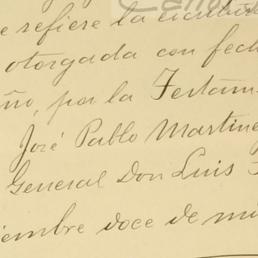 e refiere la escritura
otorgada con fech
ño, por la Testam
José Pablo Martine
General Don Luis
iembre doce de mi